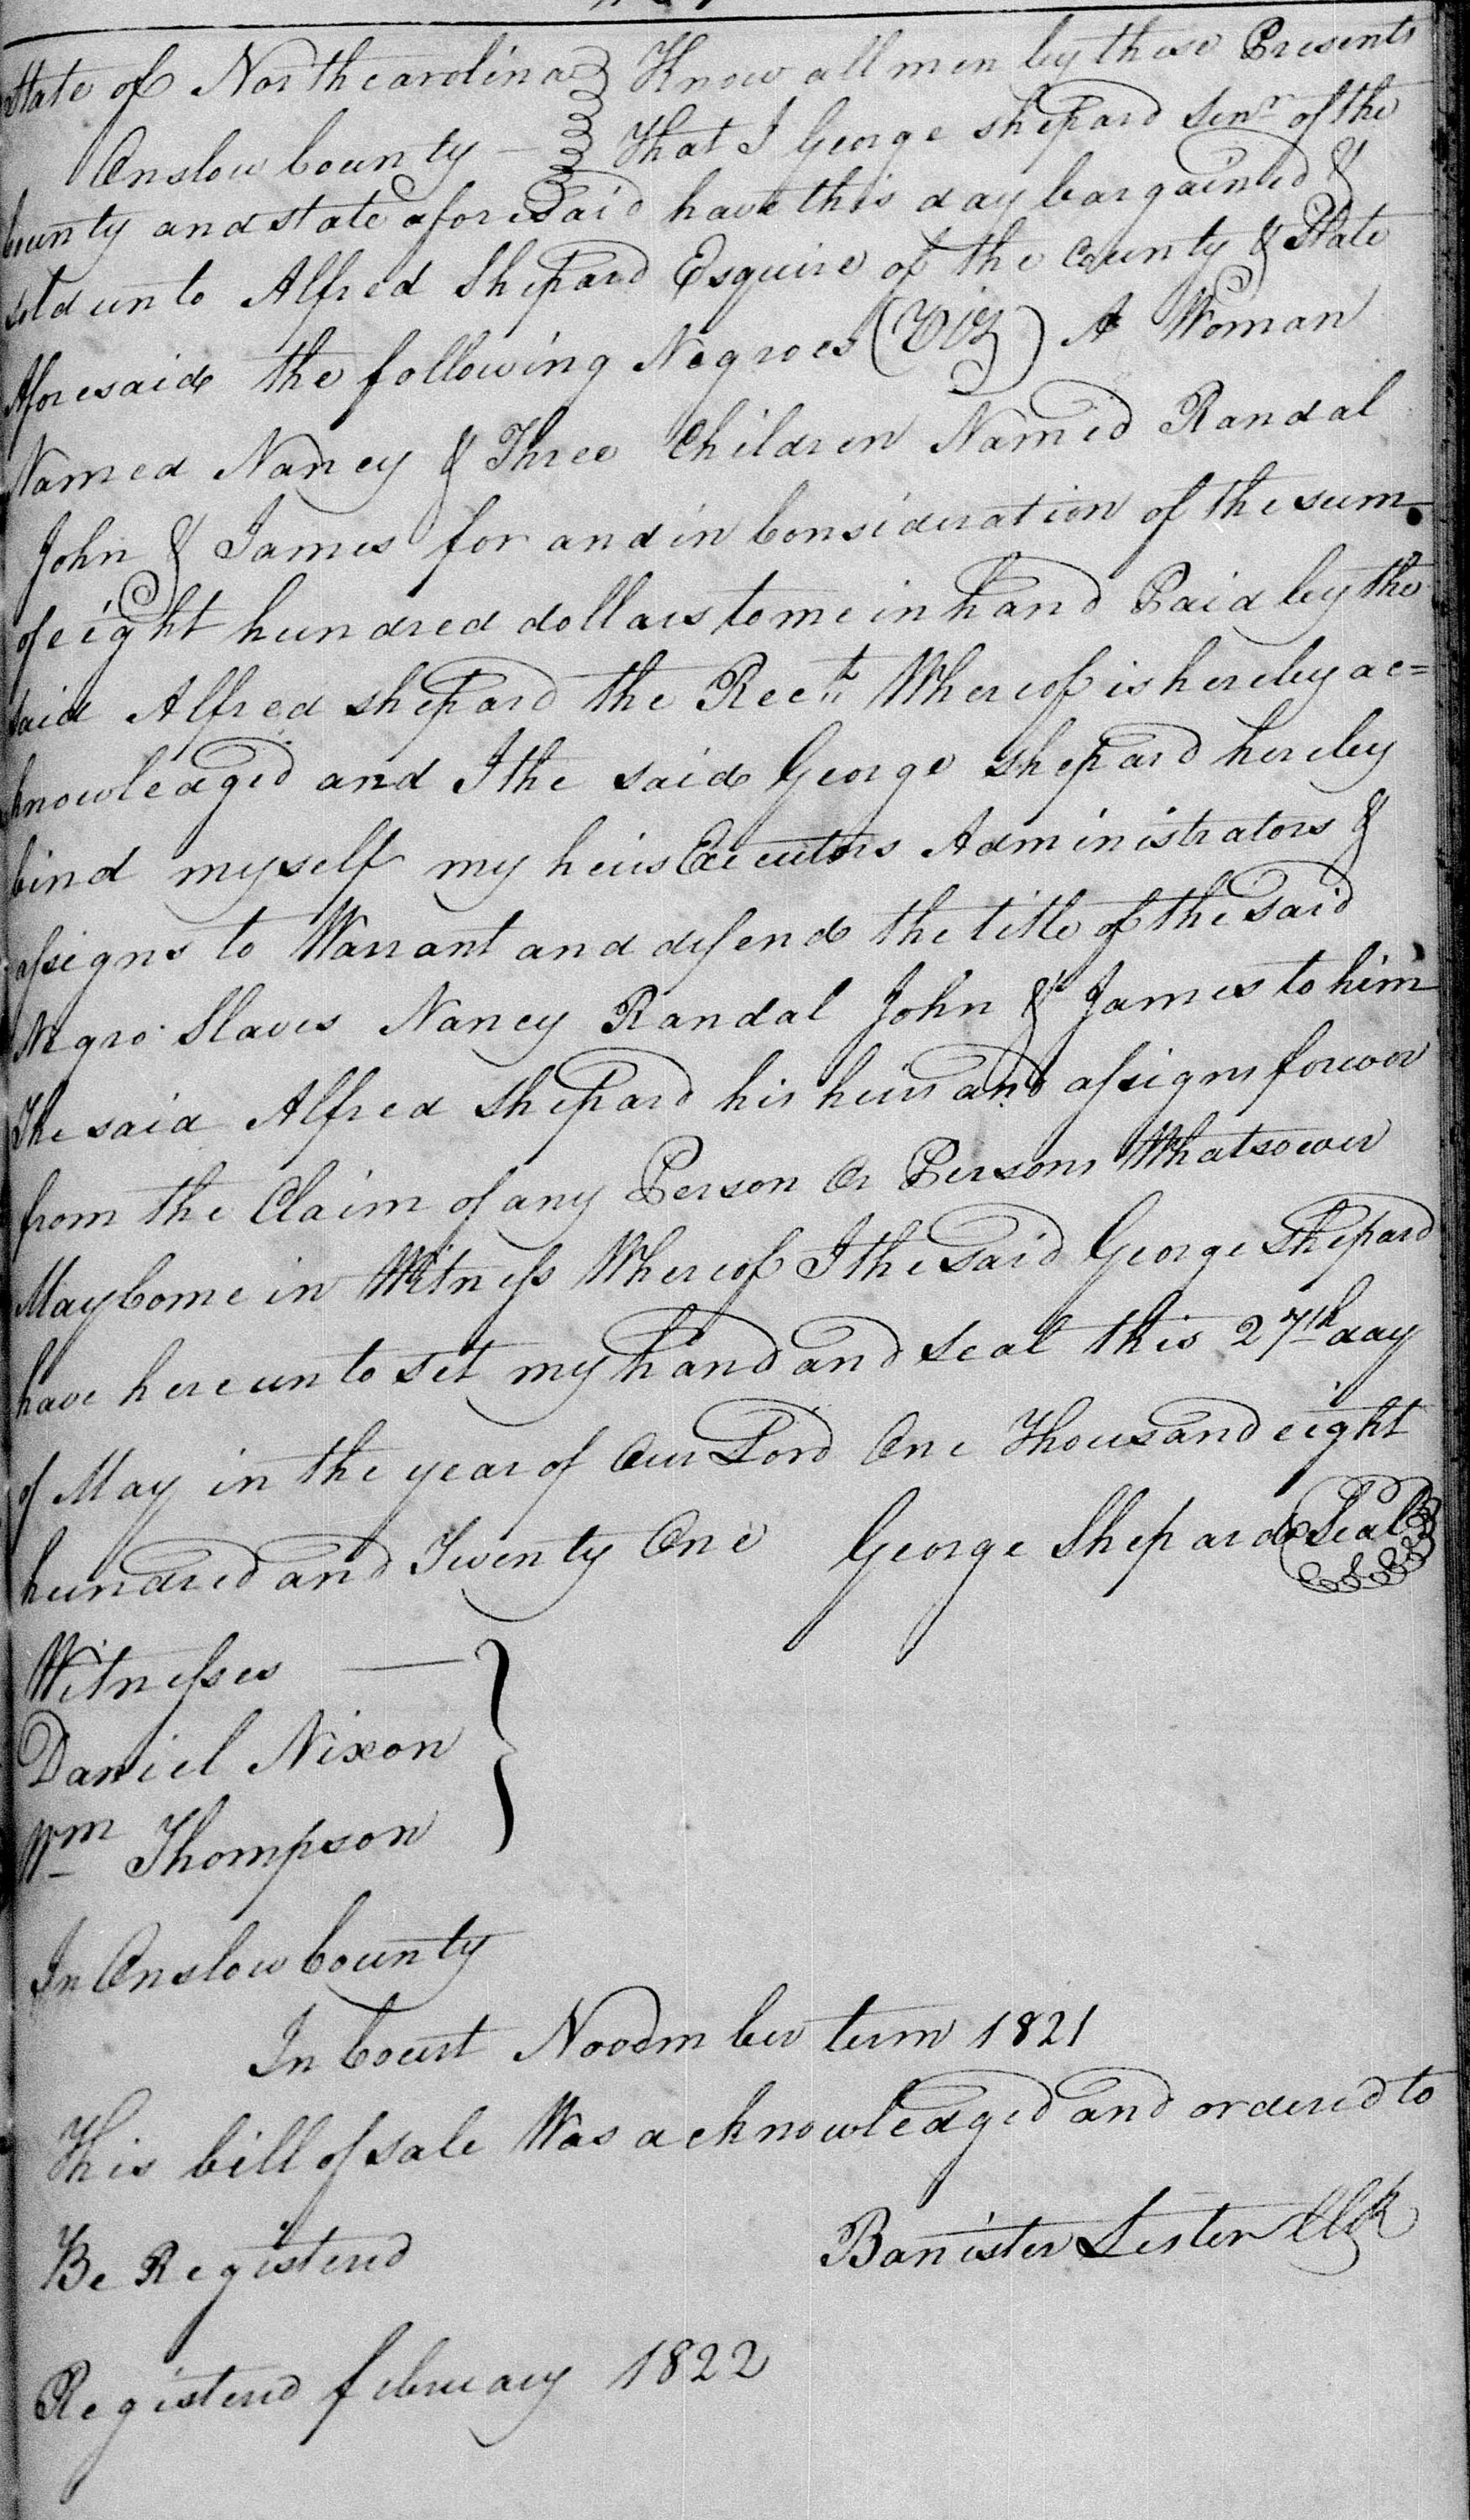 State of Northcarolina } Know all men by these Presents
Onslow County — } That I George shepard Senr of the
County and state aforesaid have this day bargained &
sold unto Alfred Shepard Esquire of the County & State
Aforesaid the following Negroes (Viz) A Woman
Named Nancy & Three Children Named Randal
John & James for and in Consideration of the sum
of eight hundred dollars to me in hand Paid by the
said Alfred shepard the Rect Whereof is hereby ac=
knowledged and I the said George shepard hereby
bind myself my heirs Executors Administrators &
assigns to Warrant and defend the title of the said
Negro Slaves Nancy Randal John & James to him
The said Alfred Shepard his heirs and assigns forever
from the Claim of any Person Or Persons Whatsoever
May Come in Witness Whereof I the said George Shepard
have hereunto set my hand and seal this 27th day
of May in the year of Our Lord One Thousand eight
hundred and Twenty One George Shepard Seal
Witnesses —
Daniel Nixon
Wm Thompson
In Onslow County
In Court Novmber term 1821
This bill of sale Was acknowledged and ordered to
Be Registerd Banister Lester Clk
Registerd february 1822